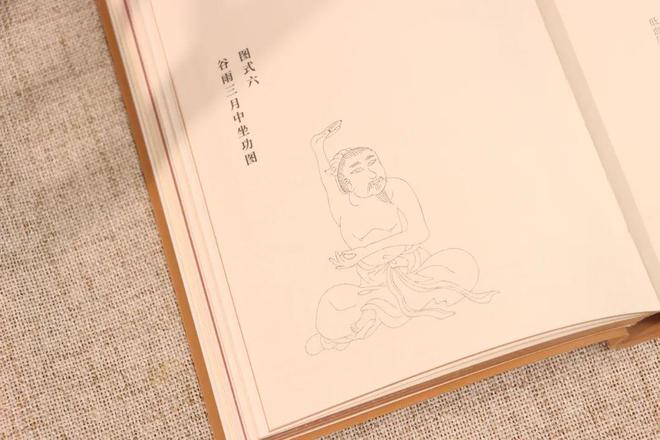 图式六
谷雨三月中坐功图